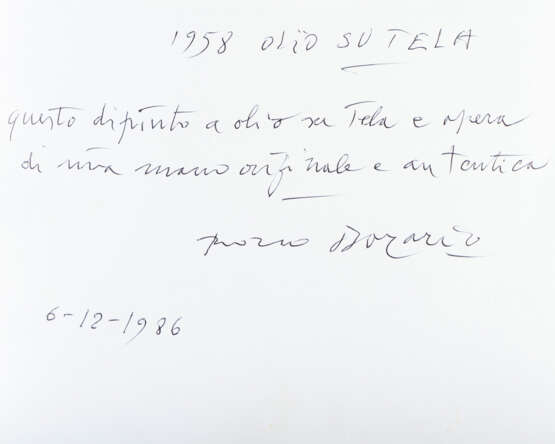 1958 OLIO SU TELA
questo dipinto a olio su Tela e opera
di mia mano originale e autentica
6-12-1986